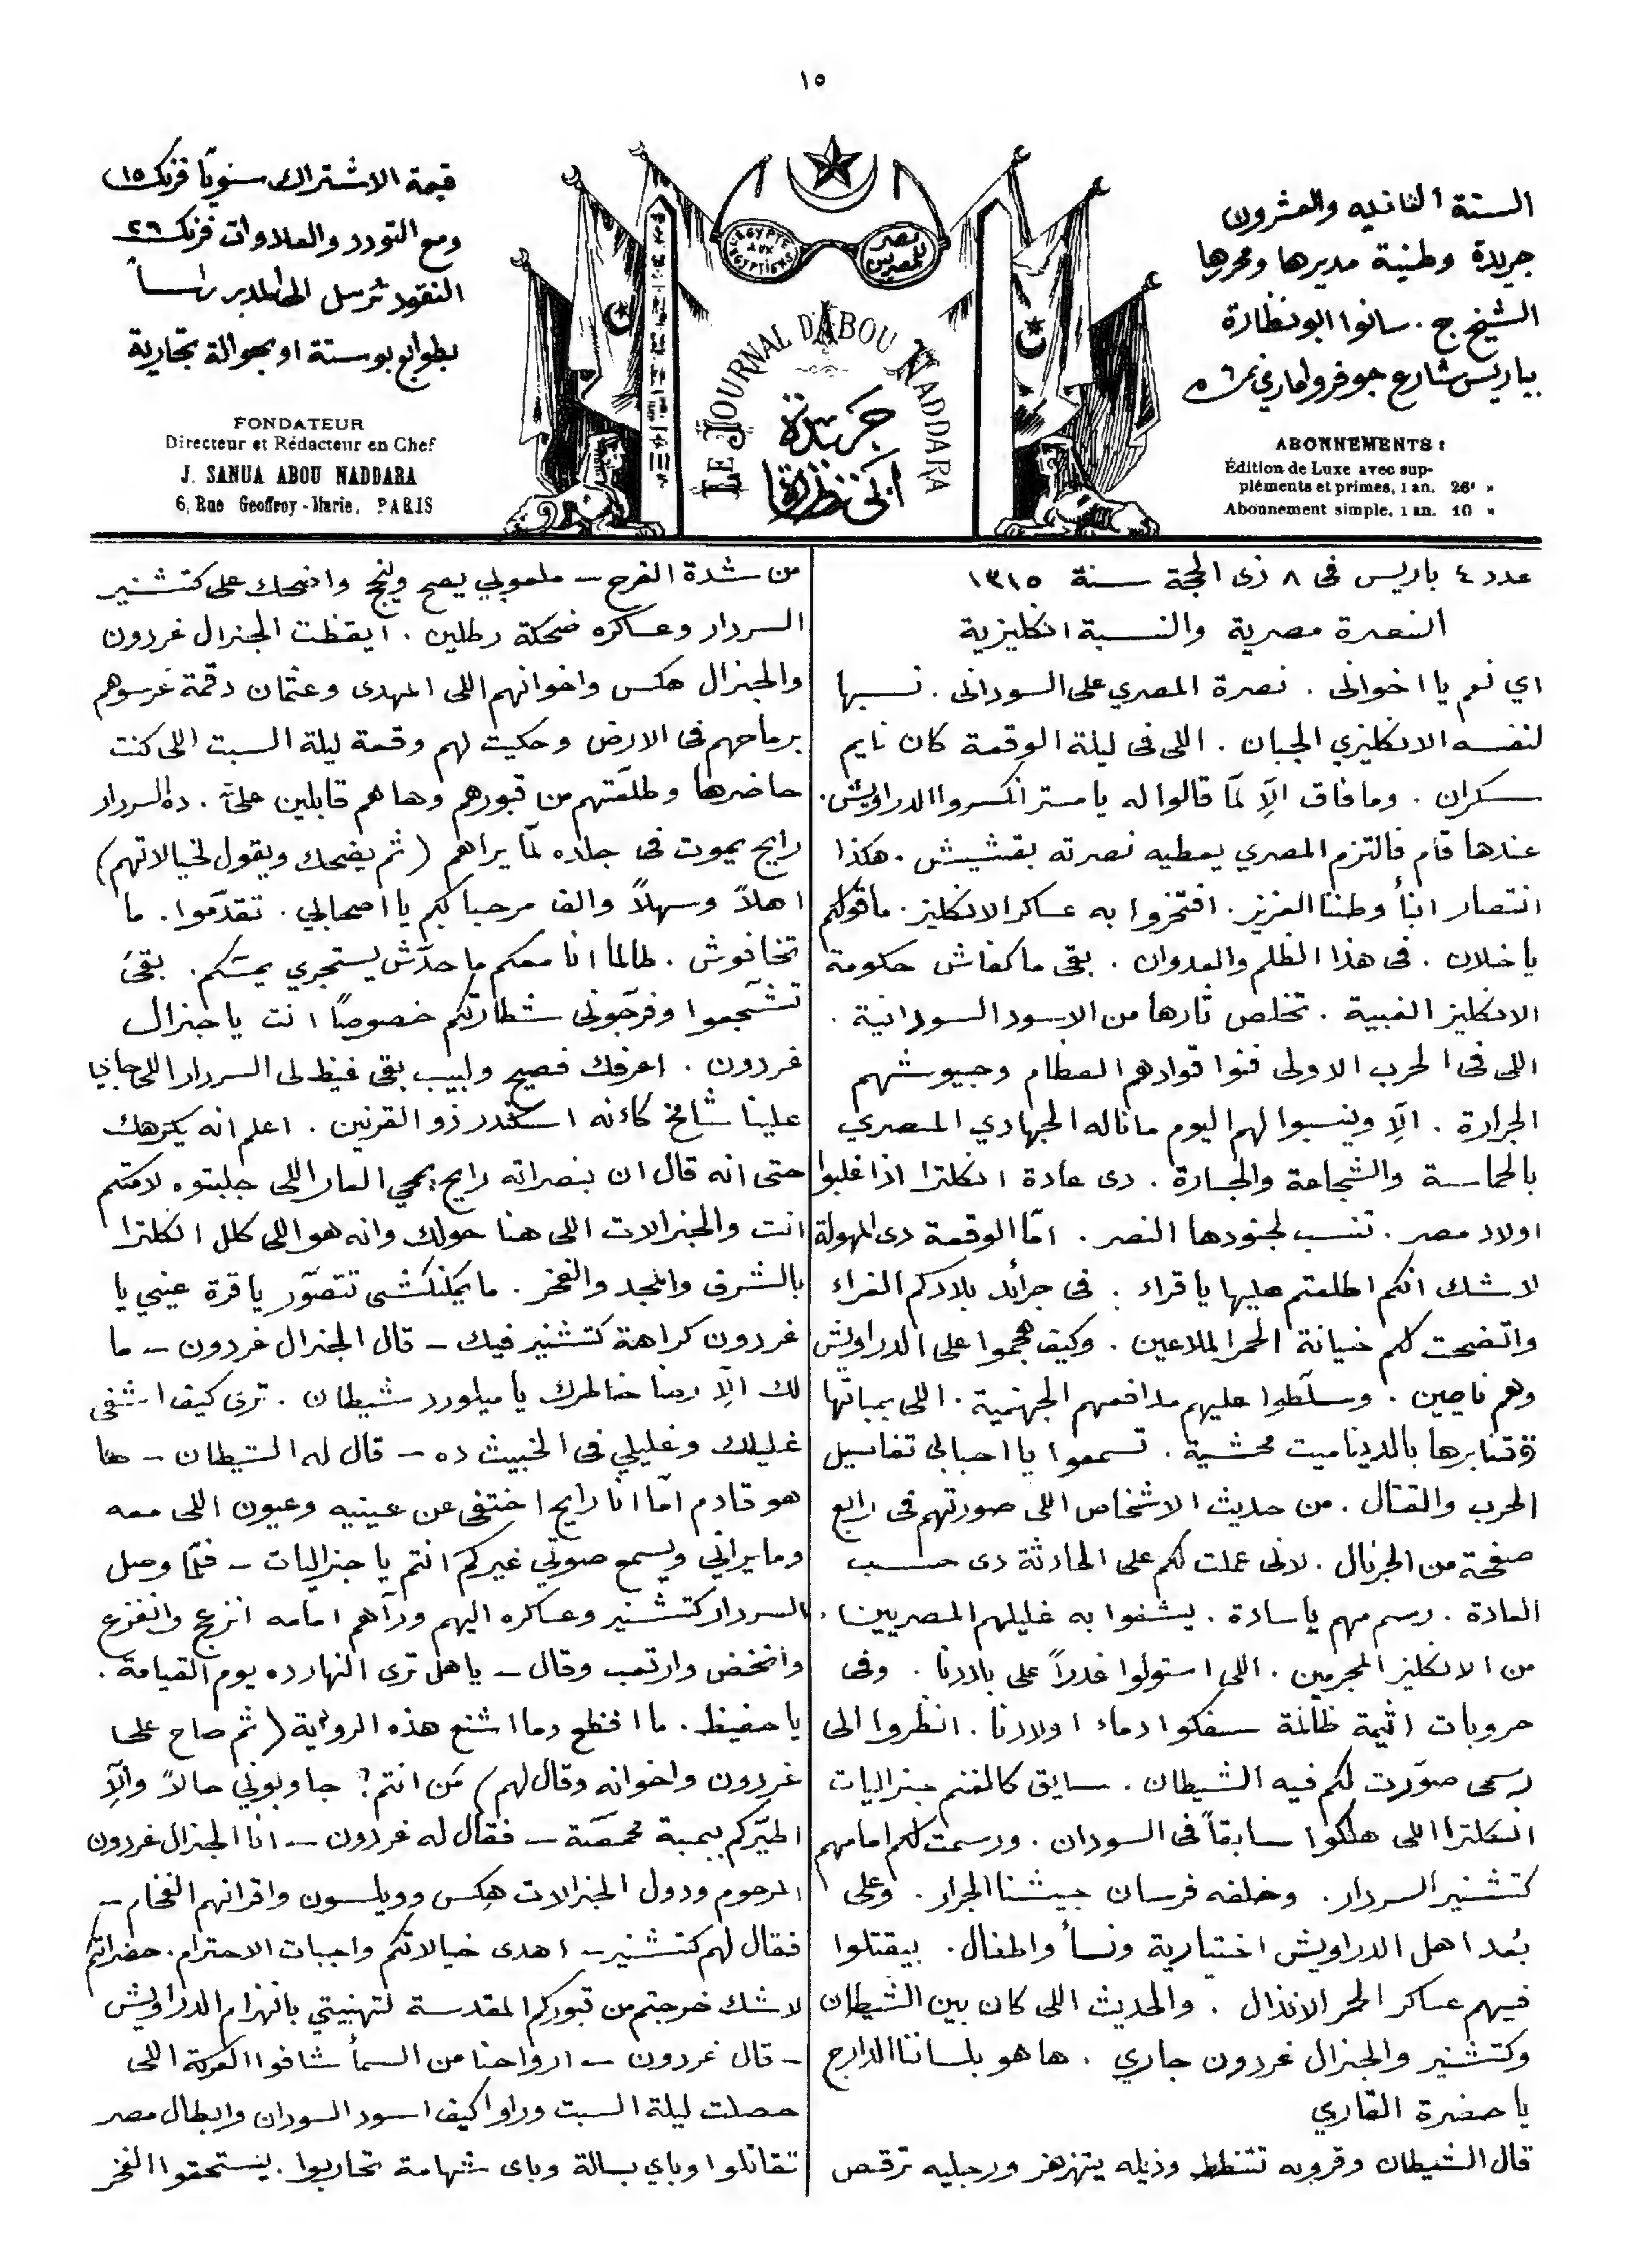 ١٥
السنة الثانيه والعشرون
جريدة وطنية مديرها ومحررها
الشيخ ج. سانوا ابو نظارة
بباريس شارع جوفروا ماري نمرة ٦
ABONNEMENTS :
Édition de Luxe avec sup-
pléments et primes, 1 an. 26' »
Abonnement simple, 1 an. 10 »
L'EGYPTE AUX EGYPTIENS
مصر للمصريين
LE JOURNAL D'ABOU NADDARA
جريدة
ابي نظارة
قيمة الاشتراك سنويًا فرنك ١٥
ومع التورد والعلاوات فرنك ٢٦
النقود ترسل الى المدير راسًا
بطوابع بوستة او بحوالة تجارية
FONDATEUR
Directeur et Rédacteur en Chef
J. SANUA ABOU NADDARA
6, Rue Geoffroy-Marie, PARIS
عدد ٤ باريس فى ٨ ذى الحجة سنة ١٣١٥
النصرة مصرية والنسبة انكليزية
اي نعم يا اخوانى . نصرة المصري على السودانى . نسبها
لنفسه الانكليزي الجبان . اللى فى ليلة الوقعة كان نايم
سكران . وما فاق الّا لمّا قالوا له يا مستر انكسروا الدراويش.
عندها قام فالتزم المصري يعطيه نصرته بقشيش . هكذا
انتصار ابنأ وطننا العزيز . افتخروا به عساكر الانكليز . ما قولكم
يا خلان . فى هذا الظلم والعدوان . بقى ما كفاش حكومة
الانكليز الغبية . تخلص تارها من الاسود السودانية .
اللى فى الحرب الاولى فنوا قوادهم العظام وجيوشهم
الجرارة . الّا وينسبوا لهم اليوم ما ناله الجهادي المصري
بالحماسة والشجاعة والجسارة . دى عادة انكلترا اذا غلبوا
اولاد مصر . تنسب لجنودها النصر . امّا الوقعة دى المهولة
لا شك انكم اطلعتم عليها يا قراء . فى جرائد بلادكم الغراء
واتضحت لكم خيانة الحمر الملاعين . وكيف هجموا على الدراويش
وهم نايمين . وسلّطوا عليهم مدافعهم الجهنمية . اللى بمباتها
وقنابرها بالديناميت محشية . تسمعوا يا احبابى تفاسيل
الحرب والقتال . من حديث الاشخاص اللى صورتهم فى رابع
صفحة من الجرنال . لانى عملت لكم على الحادثة دى حسب
العادة . رسم مهم يا سادة . يشفوا به غليلهم المصريين .
من الانكليز المجرمين . اللى استولوا غدراً على بلادنا . وفى
حروبات اثيمة ظالمة سفكوا دماء اولادنا . انظروا الى
رسمى صوّرت لكم فيه الشيطان . سايق كالغنم جنراليات
انكلترا اللى هلكوا سابقاً فى السودان . ورسمت لكم امامهم
كتشنير السردار . وخلفه فرسان جيشنا الجرار . وعلى
بُعد اهل الدراويش اختيارية ونسأ واطفال . بيقتلوا
فيهم عساكر الحمر الانذال . والحديث اللى كان بين الشيطان
وكتشنير والجنرال غردون جاري . ها هو بلساننا الدارج
يا حضرة القاري
قال الشيطان وقرونه تتنطط وذيله يتهزهز ورجليه ترقص
من شدة الفرح – ملعوبي يصح وينجح واضحك على كتشنير
السردار وعساكره ضحكة رطلين . ايقظت الجنرال غردون
والجنرال هكس واخوانهم اللى المهدى وعثمان دقمة غرسوهم
برماحهم فى الارض وحكيت لهم وقعة ليلة السبت اللى كنت
حاضرها وطلّعتهم من قبورهم وها هم قابلين علىّ . ده السردار
رايح يموت فى جلده لمّا يراهم (ثم يضحك ويقول لخيالاتهم)
اهلاً وسهلاً والف مرحبا بكم يا اصحابي . تقدّموا . ما
تخافوش . طالما انا معكم ما حدّش يستجري يمسّكم . بقى
تشجعوا وفرّجونى شطارتكم خصوصًا انت يا جنرال
غردون . اعرفك فصيح ولبيب بقى غيظ لى السردار اللى جانا
علينا شامخ كانه اسكندر ذو القرنين . اعلم انه يكرهك
حتى انه قال ان بنصراته رايح يمحي العار اللى جلبتوه لامّتكم
انت والجنرالات اللى هنا حولك وانه هو اللى كلل انكلترا
بالشرف والمجد والفخر . ما يمكنكشى تتصوّر يا قرة عيني يا
غردون كراهة كتشنير فيك – قال الجنرال غردون – ما
لك الّا رضا خاطرك يا ميلورد شيطان . ترى كيف اشفى
غليلك وغليلي فى الخبيث ده – قال له الشيطان – ها
هو قادم امّا انا رايح اختفى عن عينيه وعيون اللى معه
وما يراني ويسمع صوتي غيركم انتم يا جنراليات – فلمّا وصل
السردار كتشنير وعساكره اليهم ورآهم امامه انزعج وانفزع
وانخض وارتعب وقال – يا هل ترى النهارده يوم القيامة .
يا حفيظ . ما افظع وما اشنع هذه الرواية (ثم صاح على
غردون واخوانه وقال لهم) مَن انتم؟ جاوبوني حالاً والّا
اطيّركم ببمبة محمصّة – فقال له غردون – انا الجنرال غردون
المرحوم ودول الجنرالات هكس وويلسون واقرانهم الفخام –
فقال لهم كتشنير – اهدى خيالاتكم واجبات الاحترام . حضراتكم
لا شك خرجتم من قبوركم المقدسة لتهنيتي بانهزام الدراويش
– قال غردون – ارواحنا من السمأ شافوا المعركة اللى
حصلت ليلة السبت وراوا كيف اسود السودان وابطال مصر
تقاتلوا وباي بسالة وباى شهامة تحاربوا . يستحقوا الفخر